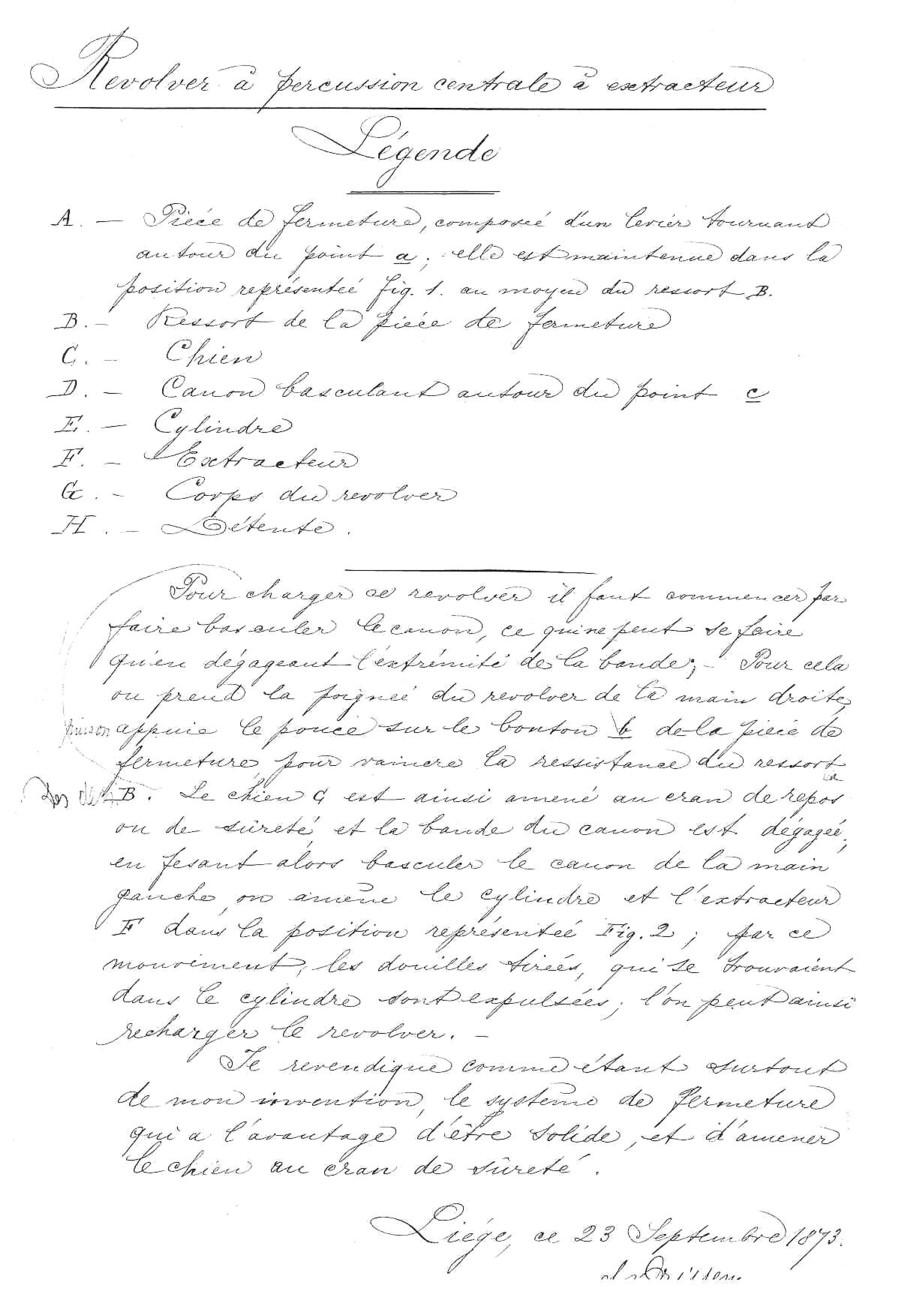 Revolver à percussion centrale à extracteur
Légende
A. — Piéce de fermeture, composeé d'un levier tournant
autour du point a; elle est maintenue dans la
position représenteé fig. 1. au moyen du ressort B.
B. — Ressort de la piéce de fermeture
C. — Chien
D. — Canon basculant autour du point c
E. — Cylindre
F. — Extracteur
G. — Corps du revolver
H. — Détente.
Pour charger ce revolver il faut commencer par
faire basculer le canon, ce qui ne peut se faire
qu'en dégageant l'extrémité de la bande; — Pour cela
on prend la poigneé du revolver de la main droite,
appuie le pouce sur le bouton b de la pièce de
fermeture pour vaincre la ressistance du ressort
B. Le chien C est ainsi amené au cran de repos
ou de sûreté et la bande du canon est dégageé,
en fesant alors basculer le canon de la main
gauche, on amène le cylindre et l'extracteur
F dans la position représenteé Fig. 2; par ce
mouvement, les douilles tireés, qui se trouvaient
dans le cylindre sont expulsées; l'on peut ainsi
recharger le revolver. —
Je revendique comme étant surtout
de mon invention, le système de fermeture
qui a l'avantage d'être solide, et d'amener
le chien au cran de sûreté.
Liége, ce 23 Septembre 1873.